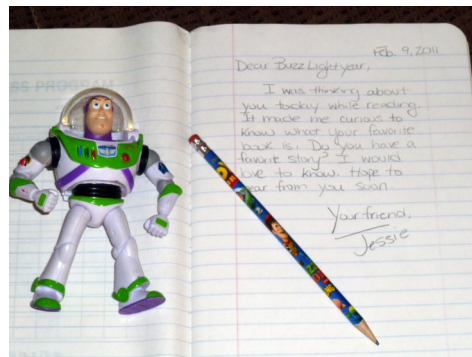 SS PROGRAM
Feb. 9, 2011
Dear Buzz Lightyear,
I was thinking about
you today while reading.
It made me curious to
know what your favorite
book is. Do you have a
favorite story? I would
love to know. Hope to
ear from you soon.
Your friend,
Jessie